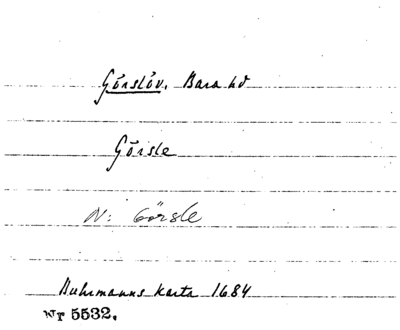 Görslöv, Bara hd
Görsle
N: Görsle
Buhrmanns karta 1684
Nr 5532.